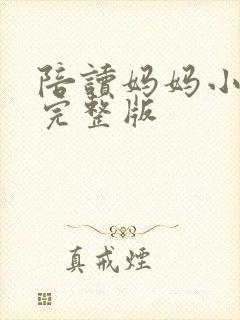 陪讀妈妈小
完整版
真戒煙